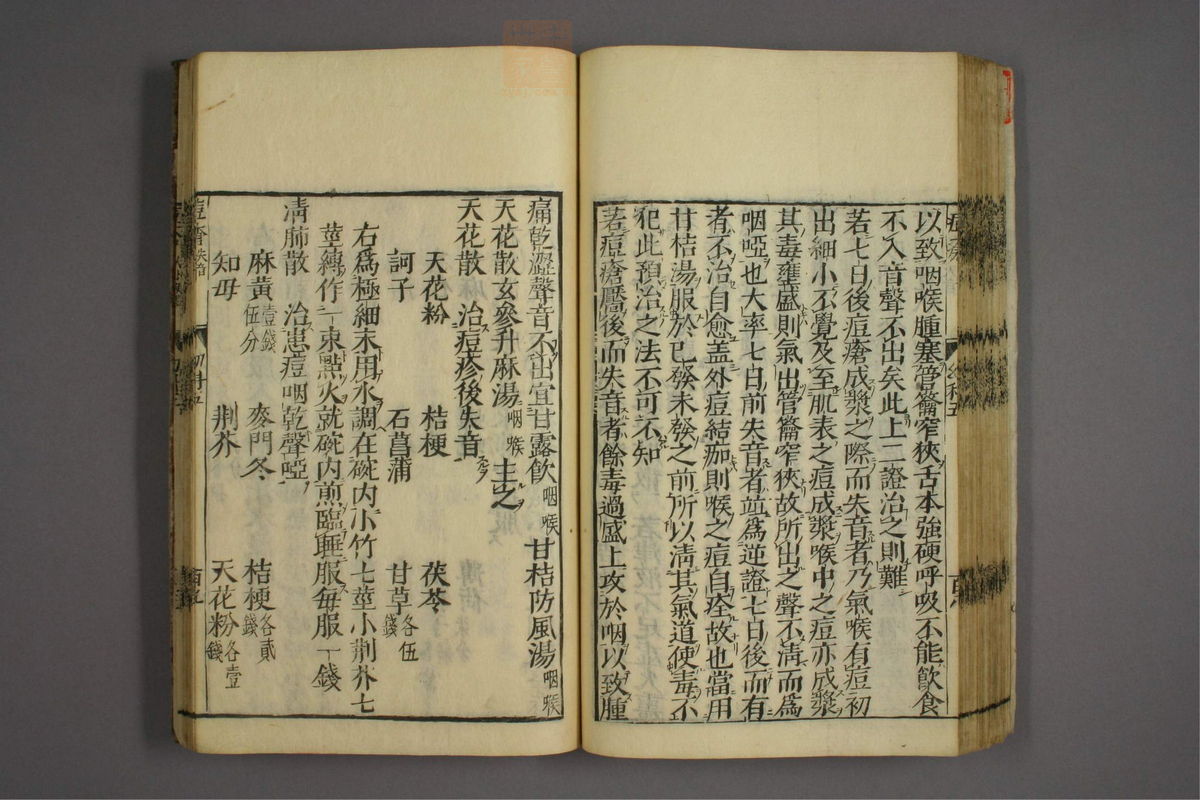 以致咽喉腫塞管籥窄狹舌本強硬呼吸不能飲食
不入音聲不出矣此上二證治之則難
若七日後痘瘡成漿之際而失音者乃氣喉有痘初
出細小不覺及至肌表之痘成漿喉中之痘亦成漿
其毒壅盛則氣出管籥窄狹故所出之聲不清而為
咽啞也大率七日前失音者竝為逆證七日後而有
者不治自愈盖外痘結痂則喉之痘自痊故也當用
甘桔湯服於已發未發之前所以清其氣道使毒不
犯此預治之法不可不知
若痘瘡靨後而失音者餘毒過盛上攻於咽以致腫
痛乾澀聲音不出宜甘露飲咽喉甘桔防風湯咽喉
天花散玄參升麻湯咽喉主之
天花散　治痘疹後失音
天花粉　桔梗　茯苓
訶子　石菖蒲　甘草各伍錢
右為極細末用水調在碗内小竹七莖小荆芥七
莖縛作一束點火就碗内煎臨睡服每服一錢
清肺散　治患痘咽乾聲啞
麻黃壹錢伍分　麥門冬　桔梗各貳錢
知母　荆芥　天花粉各壹錢